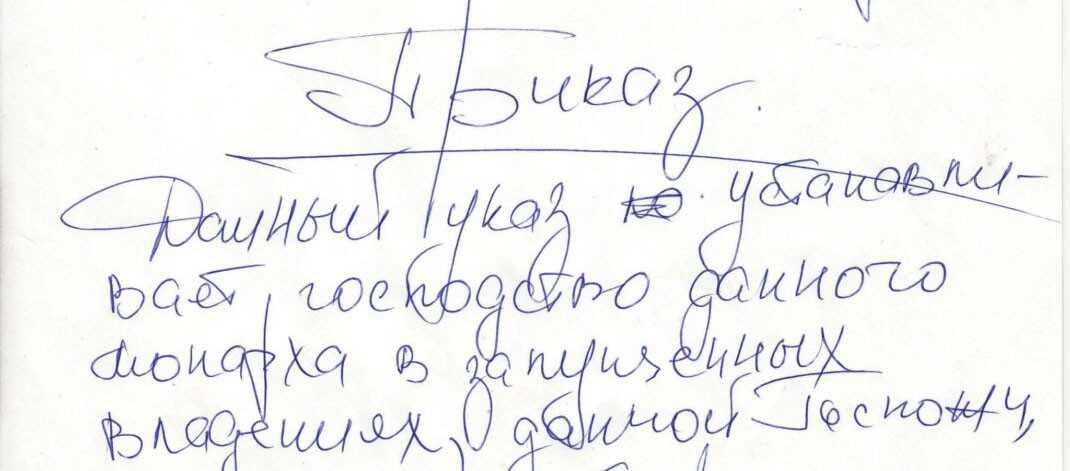 Приказ.
Данный указ устанавли-
вает, господство данного
монарха в запущенных
владениях, данной Госпожи,